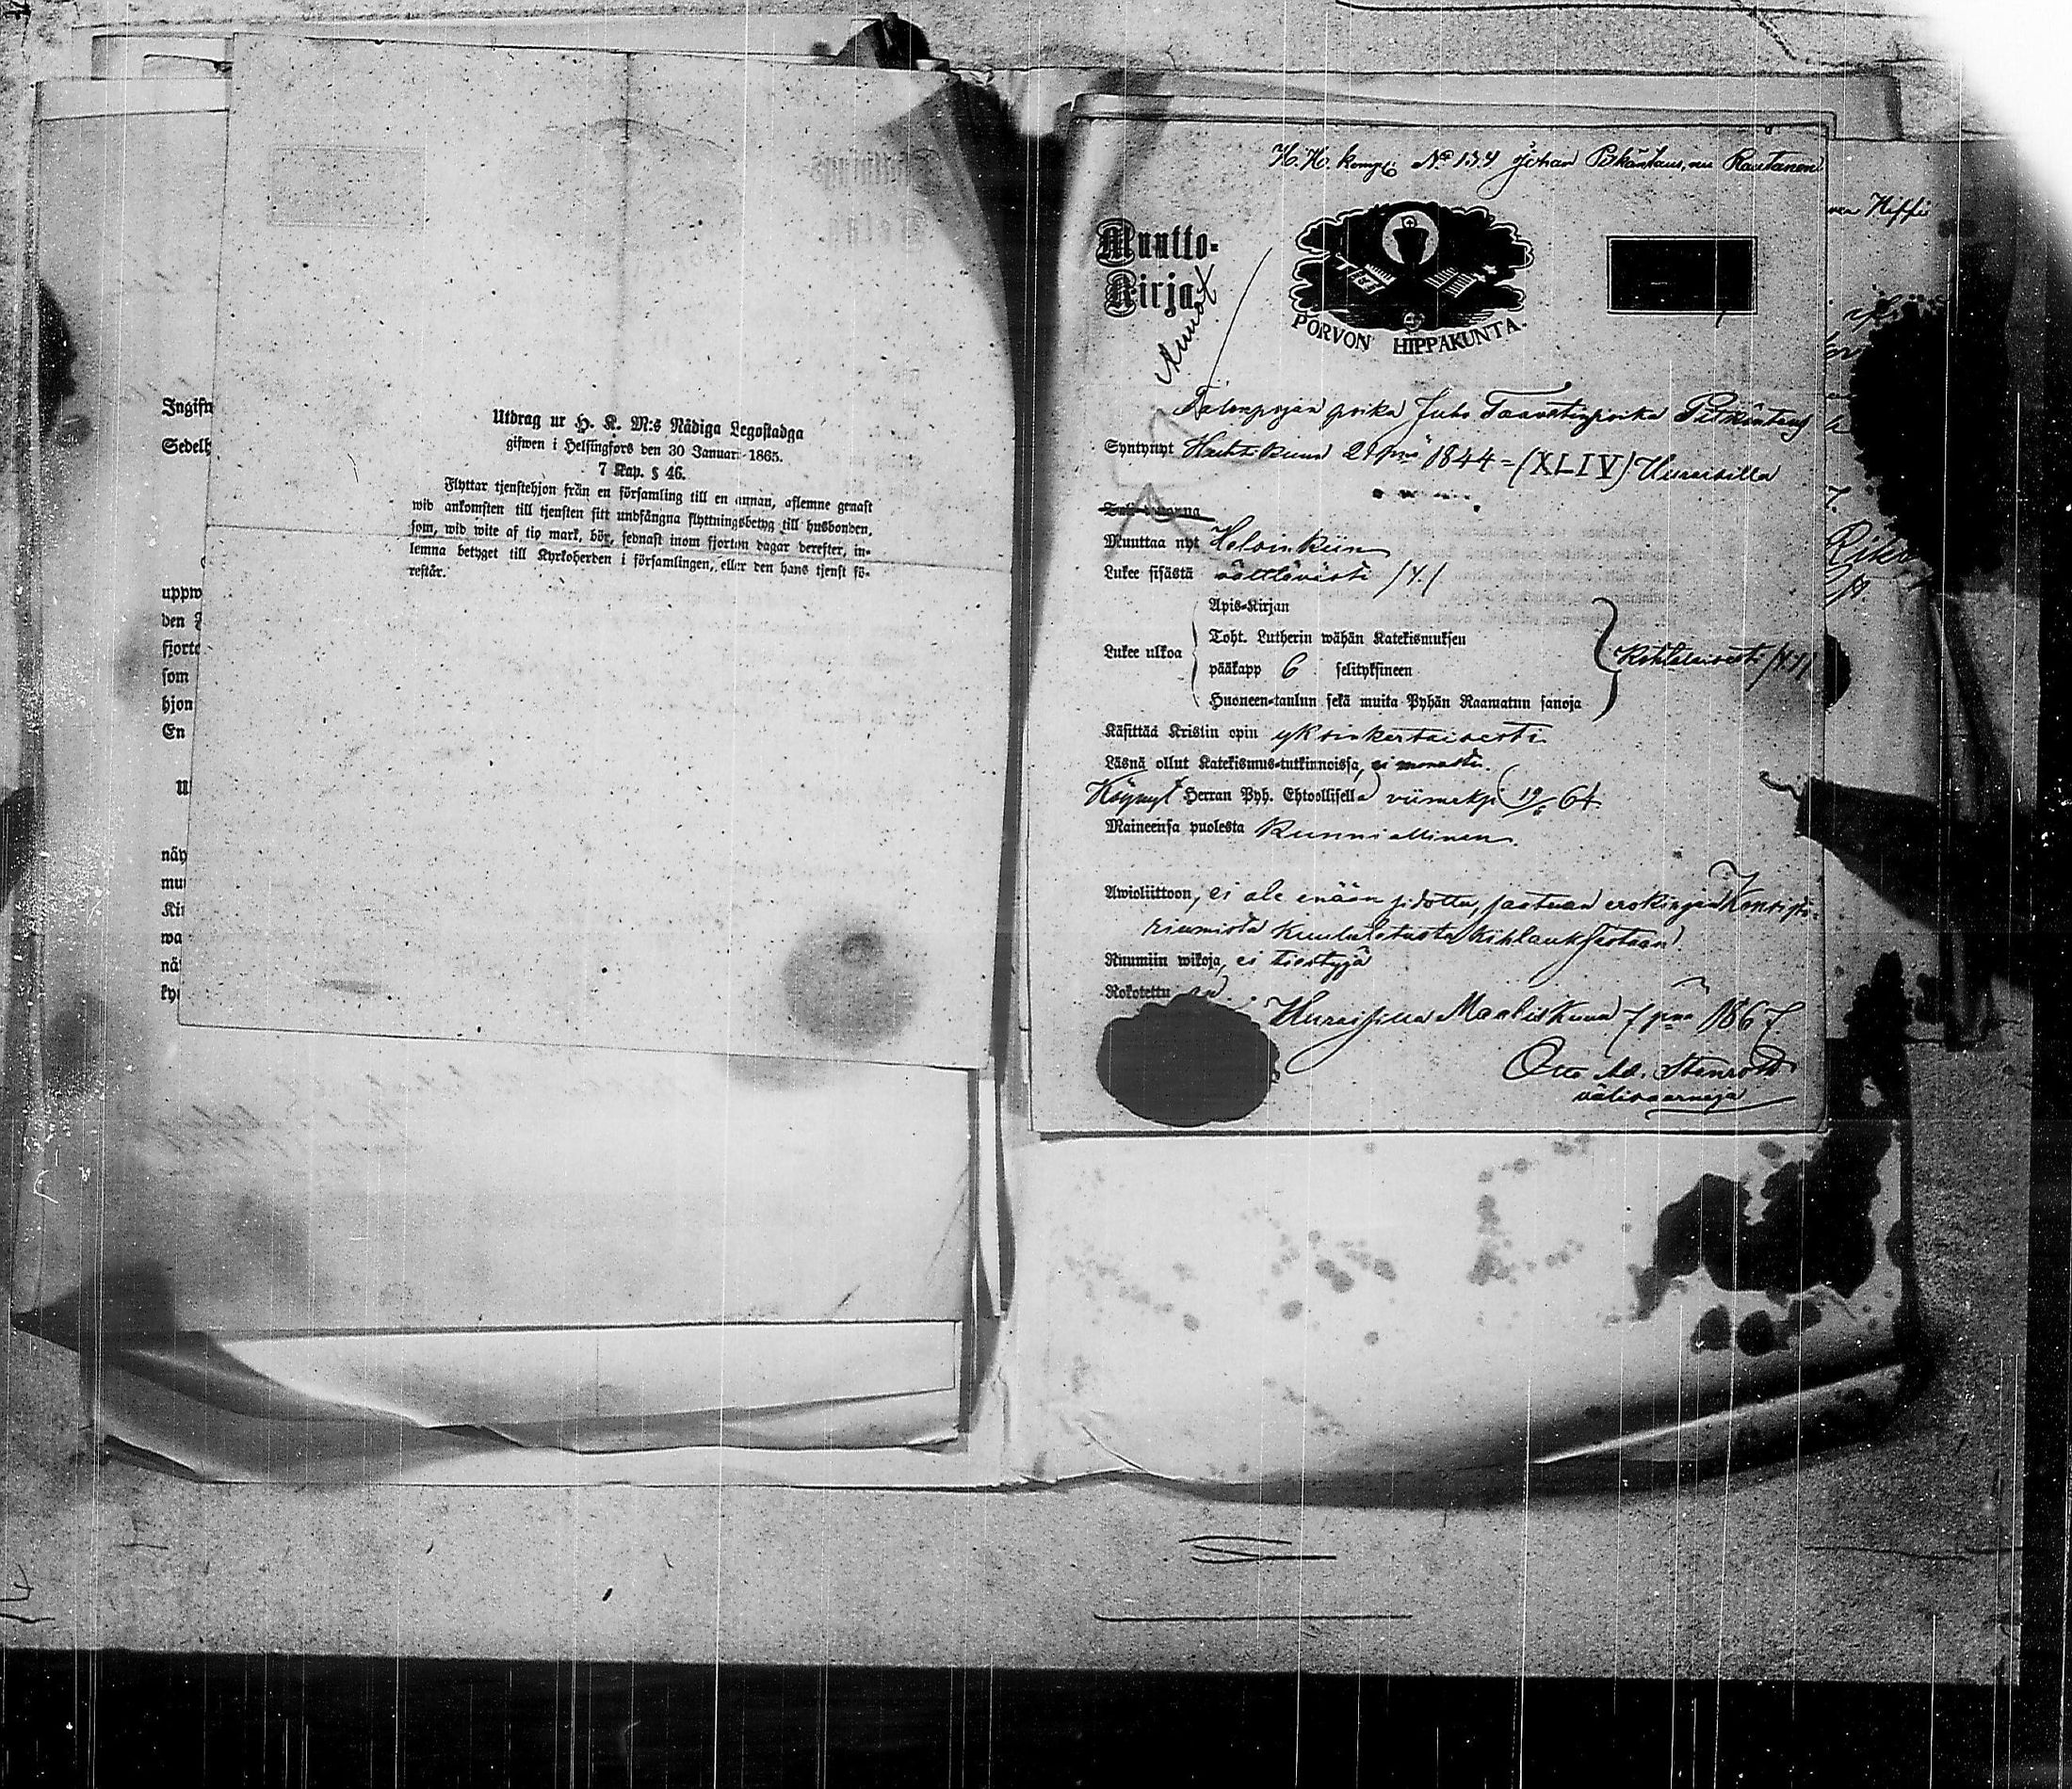 Ingifn
Sedelh
uppw
den
fjorto
som
hjon
En
näy
mu
Kir
wa
nä
ky
Utdrag ur H. K. M:s Nådiga Legostadga
gifwen i Helsingfors den 30 Januari 1865.
7 Kap. § 46.
Flyttar tjenstehjon från en församling till en annan, aflemne genast
wid ankomsten till tjensten sitt undfångna flyttningsbetyg till husbonden,
som, wid wite af tio mark, bör, sednast inom fjorton dagar derefter, in-
lemna betyget till Kyrkoherden i församlingen, eller den hans tjenst fö-
restår.
H. H. komp: No 134 Johan Pitkäntaus, nu Rautanen
Muutto-
Kirja
PORVON HIPPAKUNTA.
Talonpojan poika Juho Taavetinpoika Pitkäntaus
Syntynyt Huhtikuun 21 pnä 1844 = (XLIV) Uuraisilla
Muuttaa nyt Helsinkiin
Lukee sisästä välttävästi /4./
Lukee ulkoa
Apis-Kirjan
Toht. Lutherin wähän Katekismuksen
pääkapp 6 selityksineen
Huoneen-taulun sekä muita Pyhän Raamatun sanoja
Kohtalaisesti /4./
Käsittää Kristin opin yksinkertaisesti
Läsnä ollut Katekismus-tutkinnoissa, ei monasti.
Käynyt Herran Pyh. Ehtoollisella viimeksi 64.
Maineensa puolesta Kunniallinen.
Awioliittoon, ei ole enään sidottu, saatuan erokirjan Konsisto-
riumista kuulutetusta kihlauksestaan.
Ruumiin wikoja, ei tiettyjä
Rokotettu on.
Uuraisilla Maaliskuun 7 pnä 1867.
Otto Ad. Stenroth
välisaarnaja